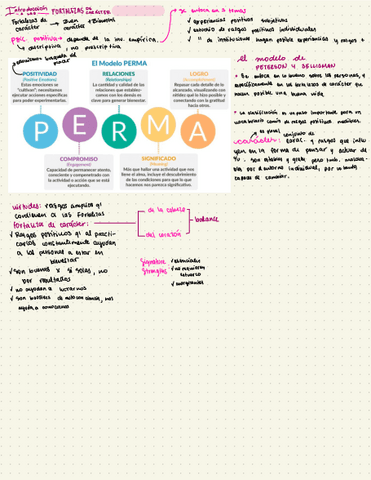 Introducción a las FORTALEZAS DE CARÁCTER
Fortalezas de carácter → Buen carácter → Bienestar
psic. positiva → depende de la inv. empírica.
→ descriptiva, no prescriptiva
→ bienestar basado en
se enfoca en 3 temas
✓ experiencias positivas subjetivas
✓ estudio de rasgos positivos individuales
✓ " de instituciones hagan posible experiencias y rasgos +
El Modelo PERMA
POSITIVIDAD
(Positive Emotions)
Estas emociones se
"cultivan"; necesitamos
ejecutar acciones específicas
para poder experimentarlas.
RELACIONES
(Relationships)
La cantidad y calidad de las
relaciones que estable-
cemos con los demás es
clave para generar bienestar.
LOGRO
(Accomplishment)
Repasar cada detalle de lo
alcanzado, visualizando con
nitidez qué lo hizo posible y
conectando con la gratitud
hacia otros.
P E R M A
COMPROMISO
(Engagement)
Capacidad de permanecer atento,
consciente y comprometido con
la actividad o acción que se está
ejecutando.
SIGNIFICADO
(Meaning)
Más que hallar una actividad que nos
llene el alma, incluye el descubrimiento
de las condiciones para que lo que
hacemos nos parezca significativo.
el modelo de
PETERSON Y SELIGMAN
se enfoca en lo bueno sobre las personas, y
específicamente en las fortalezas de carácter que
hacen posible una buena vida
• La clasificación es un paso importante para un
vocabulario común de rasgos positivos medibles.
carácter: conjunto de
carac. y rasgos que influ
yen en la forma de pensar y actuar de
tu. son estables y
por el entorno individual, por lo tanto
capaces de cambiar.
virtudes: rasgos amplios q'
constituyen a las fortalezas
fortalezas de carácter:
✓ Rasgos positivos q' al practi-
carlos constantemente ayudan
a las personas a estar en
bienestar
✓ son buenas x si solas, no
por resultados
✓ no ayudan a
✓ son
ayuda a
de la cabeza
del corazón
balance
Signature Strengths
✓ esenciales
✓ no requieren esfuerzo
✓ energizantes